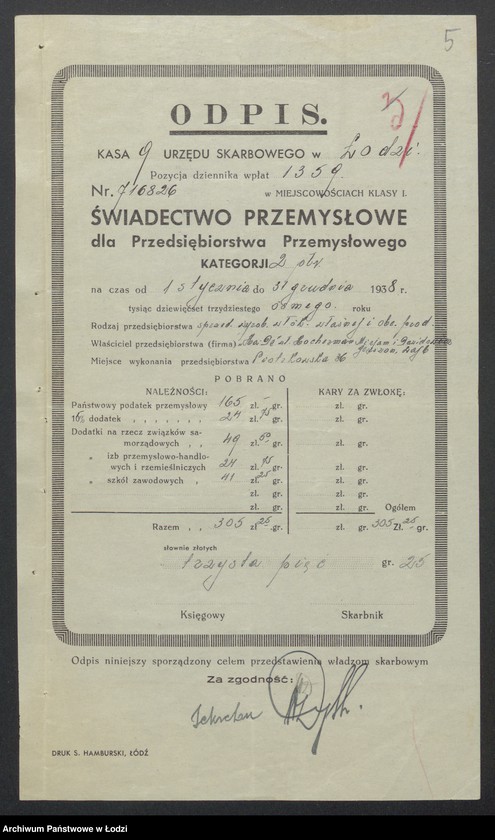 5
3/
ODPIS.
KASA 9 URZĘDU SKARBOWEGO w Łodzi.
Pozycja dziennika wpłat 1359.
Nr. 716826 w MIEJSCOWOŚCIACH KLASY I.
ŚWIADECTWO PRZEMYSŁOWE
dla Przedsiębiorstwa Przemysłowego
KATEGORJI 2
na czas od 1 stycznia do 31 grudnia 1938 r.
tysiąc dziewięćset trzydziestego ósmego. roku
Rodzaj przedsiębiorstwa sprzed. wyrob. włók. własnej i obc. prod.
Właściciel przedsiębiorstwa (firma)
Miejsce wykonania przedsiębiorstwa Piotrkowska
POBRANO
NALEŻNOŚCI: KARY ZA ZWŁOKĘ:
Państwowy podatek przemysłowy 165 zł. - gr. zł. gr.
15% dodatek , , , , , , , 24 zł. 75 gr. zł. gr.
Dodatki na rzecz związków sa-
morządowych , , 49 zł. 50 gr. zł. gr.
„ izb przemysłowo-handlo-
wych i rzemieślniczych 24 zł. 75 gr. zł. gr.
„ szkół zawodowych , 41 zł. 25 gr. zł. gr.
zł. gr. zł. gr.
zł. gr. zł. gr. Ogółem
Razem , , 305 zł 25 gr. zł. gr. 305 Zł. 25 gr.
słownie złotych
trzysta pięć gr. 25
Księgowy Skarbnik
Odpis niniejszy sporządzony celem przedstawienia władzom skarbowym
Za zgodność:
Sekretarz
DRUK S. HAMBURSKI, ŁÓDŹ
Archiwum Państwowe w Łodzi